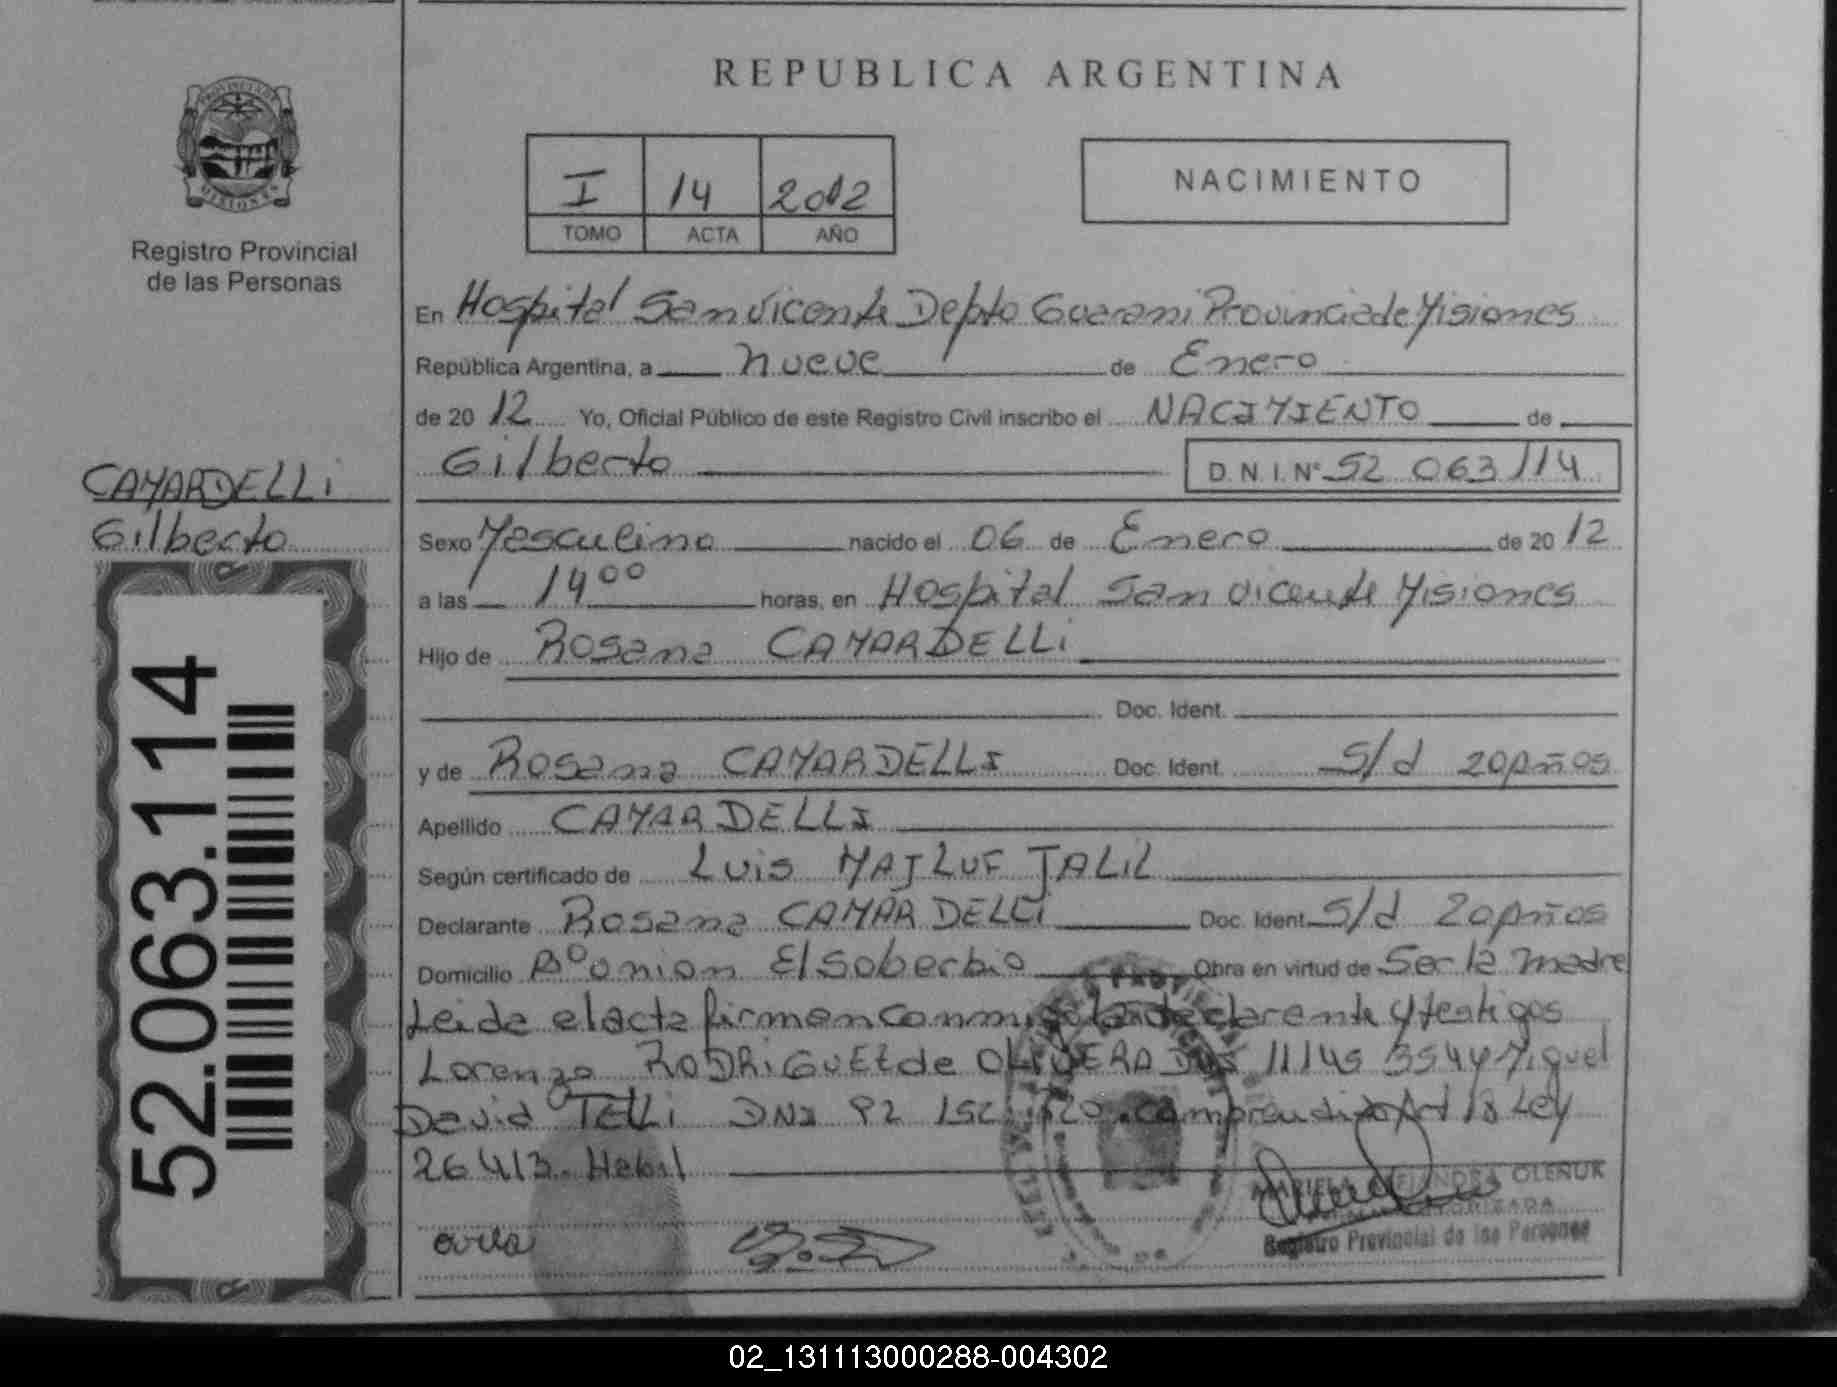 REPUBLICA ARGENTINA
PROVINCIA DE MISIONES
Registro Provincial
de las Personas
I 14 2012
TOMO ACTA AÑO
NACIMIENTO
En Hospital San Vicente Depto Guarani Provincia de Misiones
República Argentina, a nueve de Enero
de 20 12 Yo, Oficial Público de este Registro Civil inscribo el NACIMIENTO de
Gilberto D.N.I. Nº 52 063 114
CAMARDELLi
Gilberto
Sexo Masculino nacido el 06 de Enero de 20 12
a las 14 00 horas, en Hospital San Vicente Misiones
Hijo de Rosana CAMARDELLi
Doc. Ident.
y de Rosana CAMARDELLI Doc. Ident. S/d 20 años
Apellido CAMARDELLI
Según certificado de Luis MAJLUF JALIL
Declarante Rosana CAMARDELLi Doc. Ident. S/d 20 años
Domicilio Bº union El Soberbio Obra en virtud de Ser la madre
Leida el acta firman conmigo la declarante y testigos
Lorenzo RODRiGUEZ de OLIVERA DNI 11 145 354 y Miguel
David TELLi DNI 92 152 comprendido Art 18 Ley
26 413. Habil
OLENUK
Registro Provincial de las Personas
52.063.114
02_131113000288-004302